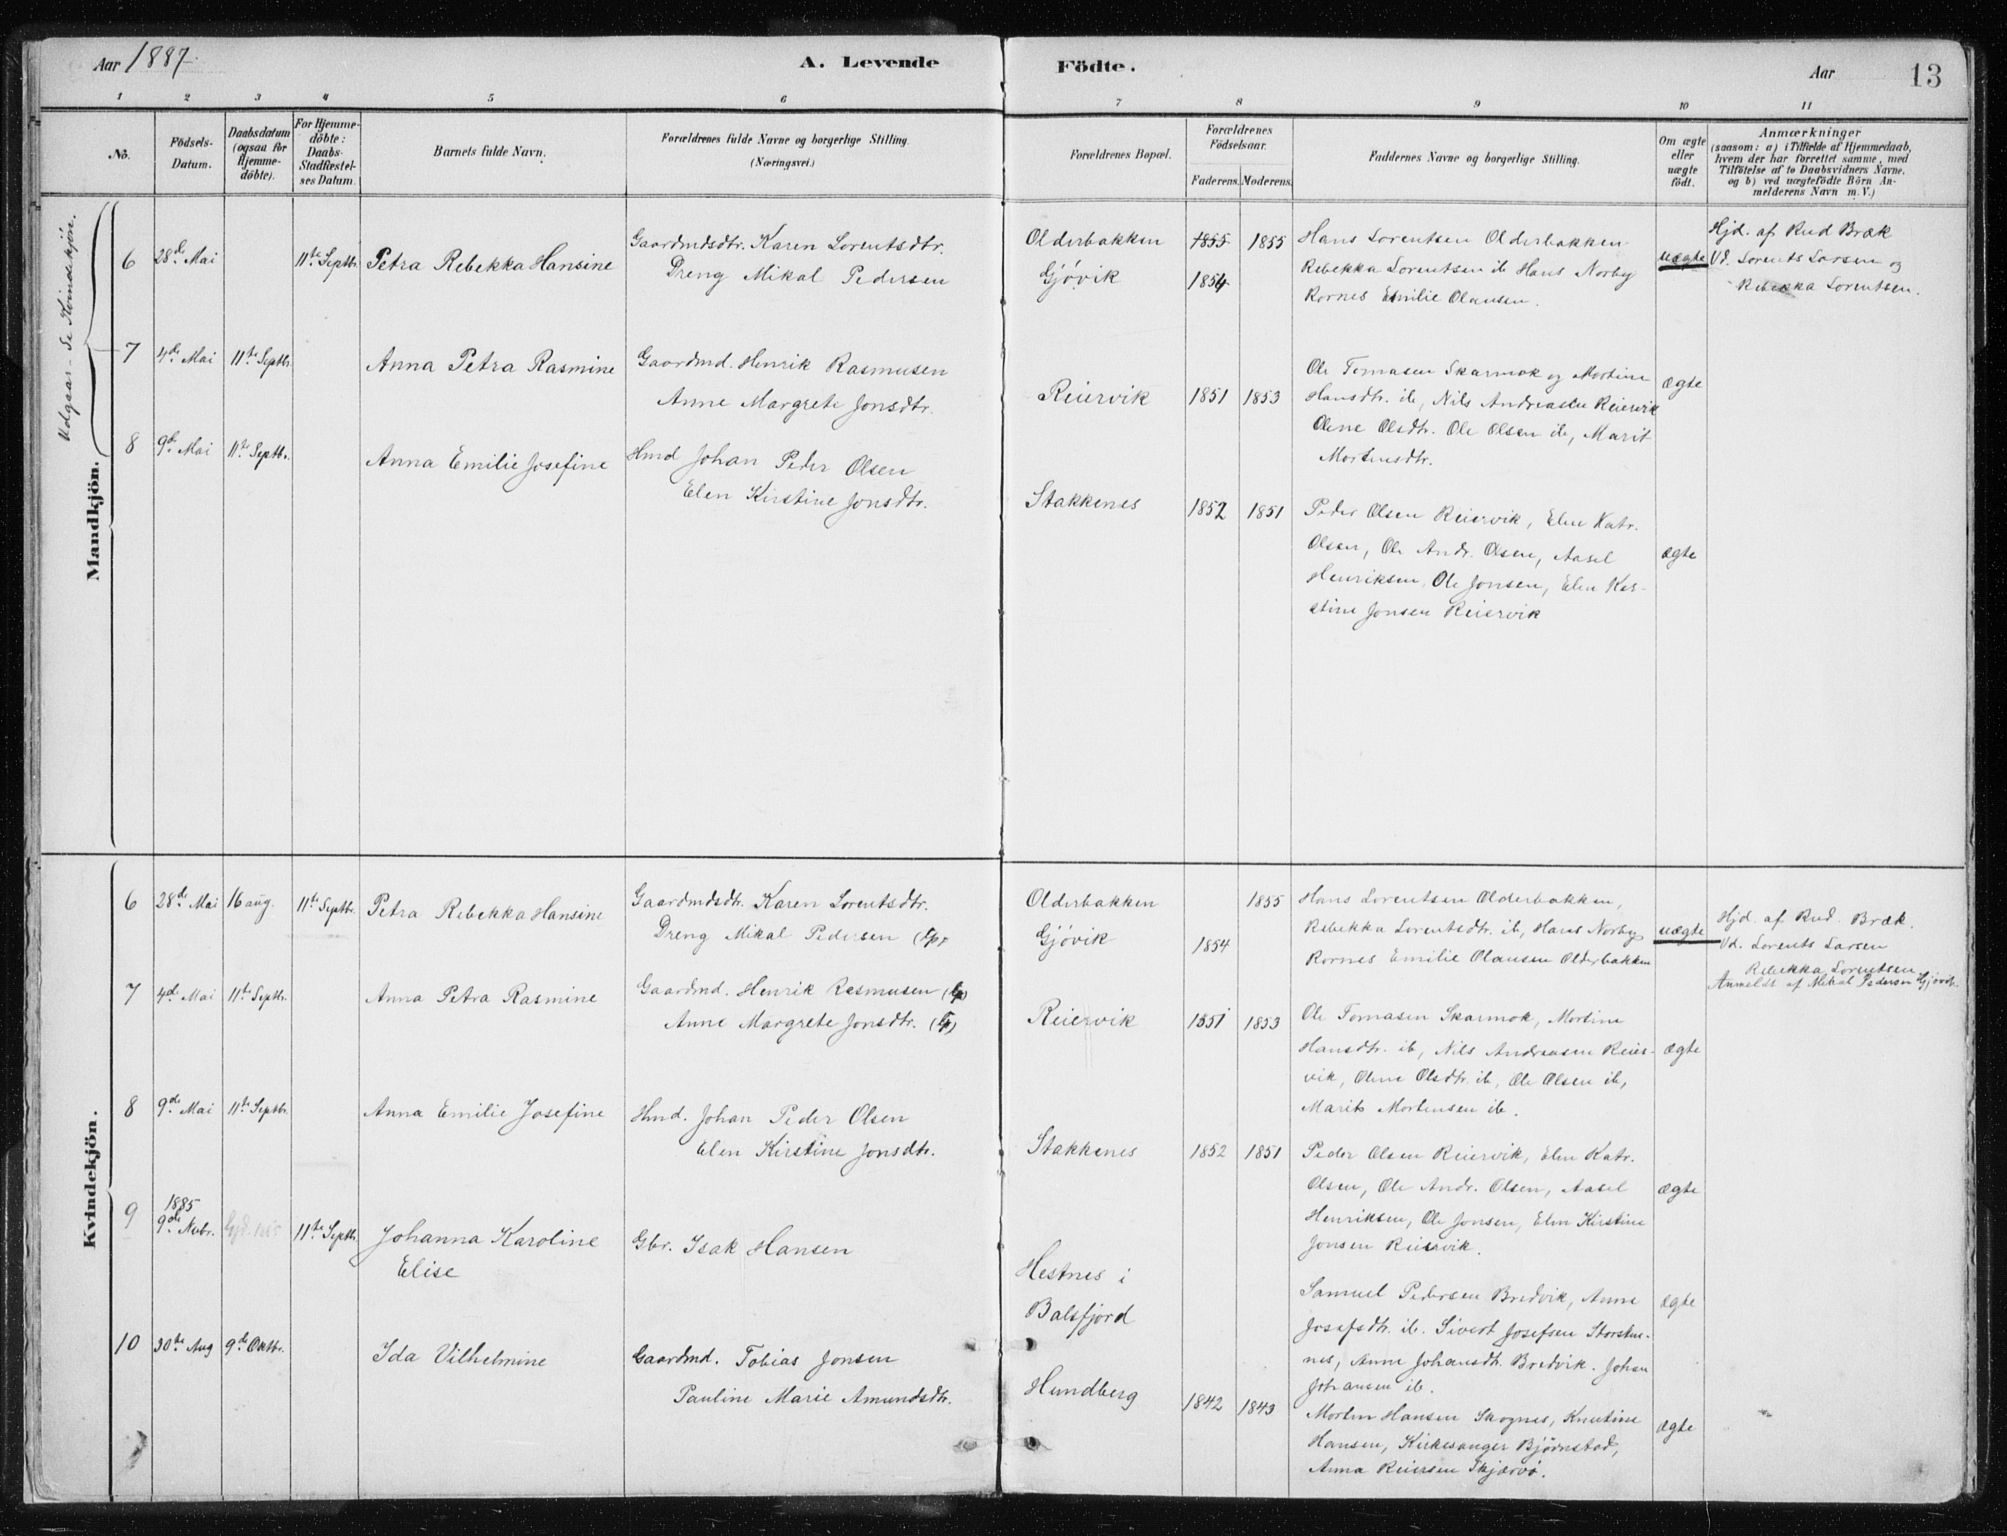 Aar 1887.
A. Levende Födte.
Aar
13
1 2 3 4 5 6 7 8 9 10 11
No.
Födsels-Datum.
Daabsdatum (ogsaa for Hjemme-döbte).
For Hjemme-döbte: Daabs-Stadfæstel-ses Datum.
Barnets fulde Navn.
Forældrenes fulde Navne og borgerlige Stilling (Næringsvei.)
Forældrenes Bopæl.
Forældrenes Födselsaar.
Faderens. Moderens.
Faddernes Navne og borgerlige Stilling.
Om ægte eller uægte födt.
Anmærkninger
(saasom: a) i Tilfælde af Hjemmedaab,
hvem der har forrettet samme, med
Tilföielse af to Daabsvidners Navne.
og b) ved uægtefödte Börn An-
melderens Navn m. V.)
Mandkjön.
Udgaar. Se Kvindekjön.
6 28de Mai 11te Septbr. Petra Rebekka Hansine
Gaardmdsdtr. Karen Lorentsdtr.
Dreng Mikal Pedersen
Olderbakken 1855 1855
Gjövik 1854
Hans Lorentsen Olderbakken
Rebekka Lorentsen ib Hans Norby
Kornes Emilie Olausen.
uægte
Hjd. af Rud Bræk
Vd. Lorents Larsen og
Rebekka Lorentsen.
7 4de Mai 11te Septbr. Anna Petra Rasmine
Gaardmd. Henrik Rasmusen
Anne Margrete Jonsdtr.
Reiervik 1851 1853
Ole Tomasen Skarmok og Mortine
Hansdtr. ib, Nils Andreasen Reiervik
Oline Olsdtr. Ole Olsen ib, Marit
Mortensdtr.
ægte
8 9de Mai 11te Septbr. Anna Emilie Josefine
Hmd Johan Peder Olsen
Elen Kirstine Jonsdtr.
Stakkenes 1852 1851
Peder Olsen Reiervik, Elen Katr.
Olsen, Ole Andr. Olsen, Aasel
Henriksen, Ole Jonsen, Elen Kir-
stine Jonsen Reiervik
ægte
Kvindekjön.
6 28de Mai 16 aug. 11te Septbr. Petra Rebekka Hansine
Gaardmdsdtr. Karen Lorentsdtr.
Dreng Mikal Pedersen
Olderbakken 1855
Gjövik 1854
Hans Lorentsen Olderbakken,
Rebekka Lorentsdtr. ib, Hans Norby
Kornes Emilie Olausen Olderbakken
uægte
Hjd. af Rud. Bræk.
Vd. Lorents Larsen
Rebekka Lorentsen
Anmeldt af Mikal Pedersen Gjövik.
7 4de Mai 11te Septbr. Anna Petra Rasmine
Gaardmd. Henrik Rasmusen
Anne Margrete Jonsdtr.
Reiervik 1851 1853
Ole Tomasen Skarmok, Mortine
Hansdtr. ib, Nils Andreasen Reier-
vik, Oline Olsdtr. ib, Ole Olsen ib,
Marit Mortensen ib.
ægte
8 9de Mai 11te Septbr. Anna Emilie Josefine
Hmd. Johan Peder Olsen
Elen Kirstine Jonsdtr.
Stakkenes 1852 1851
Peder Olsen Reiervik, Elen Katr.
Olsen, Ole Andr. Olsen, Aasel
Henriksen, Ole Jonsen, Elen Kirstine
Jonsen Reiervik.
ægte
9 1885 9de Nvbr. 11te Septbr. Johanna Karoline
Elise
Gbr. Isak Hansen
Hestnes i
Balsfjord
Samuel Pedersen Bredvik, Anne
Josefsdtr. ib. Sivert Josefsen Storsten-
nes, Anne Johansdtr. Bredvik. Johan
Johansen ib.
ægte
10 30te Aug 9de Oktbr. Ida Vilhelmine
Gaardmd. Tobias Jonsen
Pauline Marie Amundsdtr.
Hundberg 1842 1843
Morten Hansen Skognes, Knutine
Hansen, Kirkesanger Bjørnstad,
Anna Reiersen Skjærvö.
ægte